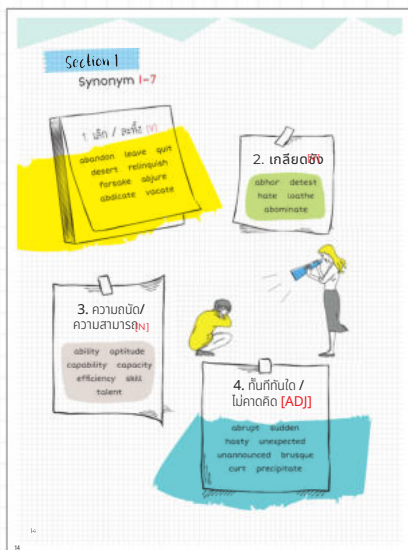 Section 1
Synonym 1-7
1. เลิก / ละทิ้ง [V]
abandon leave quit
desert relinquish
forsake abjure
abdicate vacate
2. เกลียดชัง
abhor detest
hate loathe
abominate
3. ความถนัด/
ความสามารถ[N]
ability aptitude
capability capacity
efficiency skill
talent
4. ทันทีทันใด /
ไม่คาดคิด [ADJ]
abrupt sudden
hasty unexpected
unannounced brusque
curt precipitate
14
14